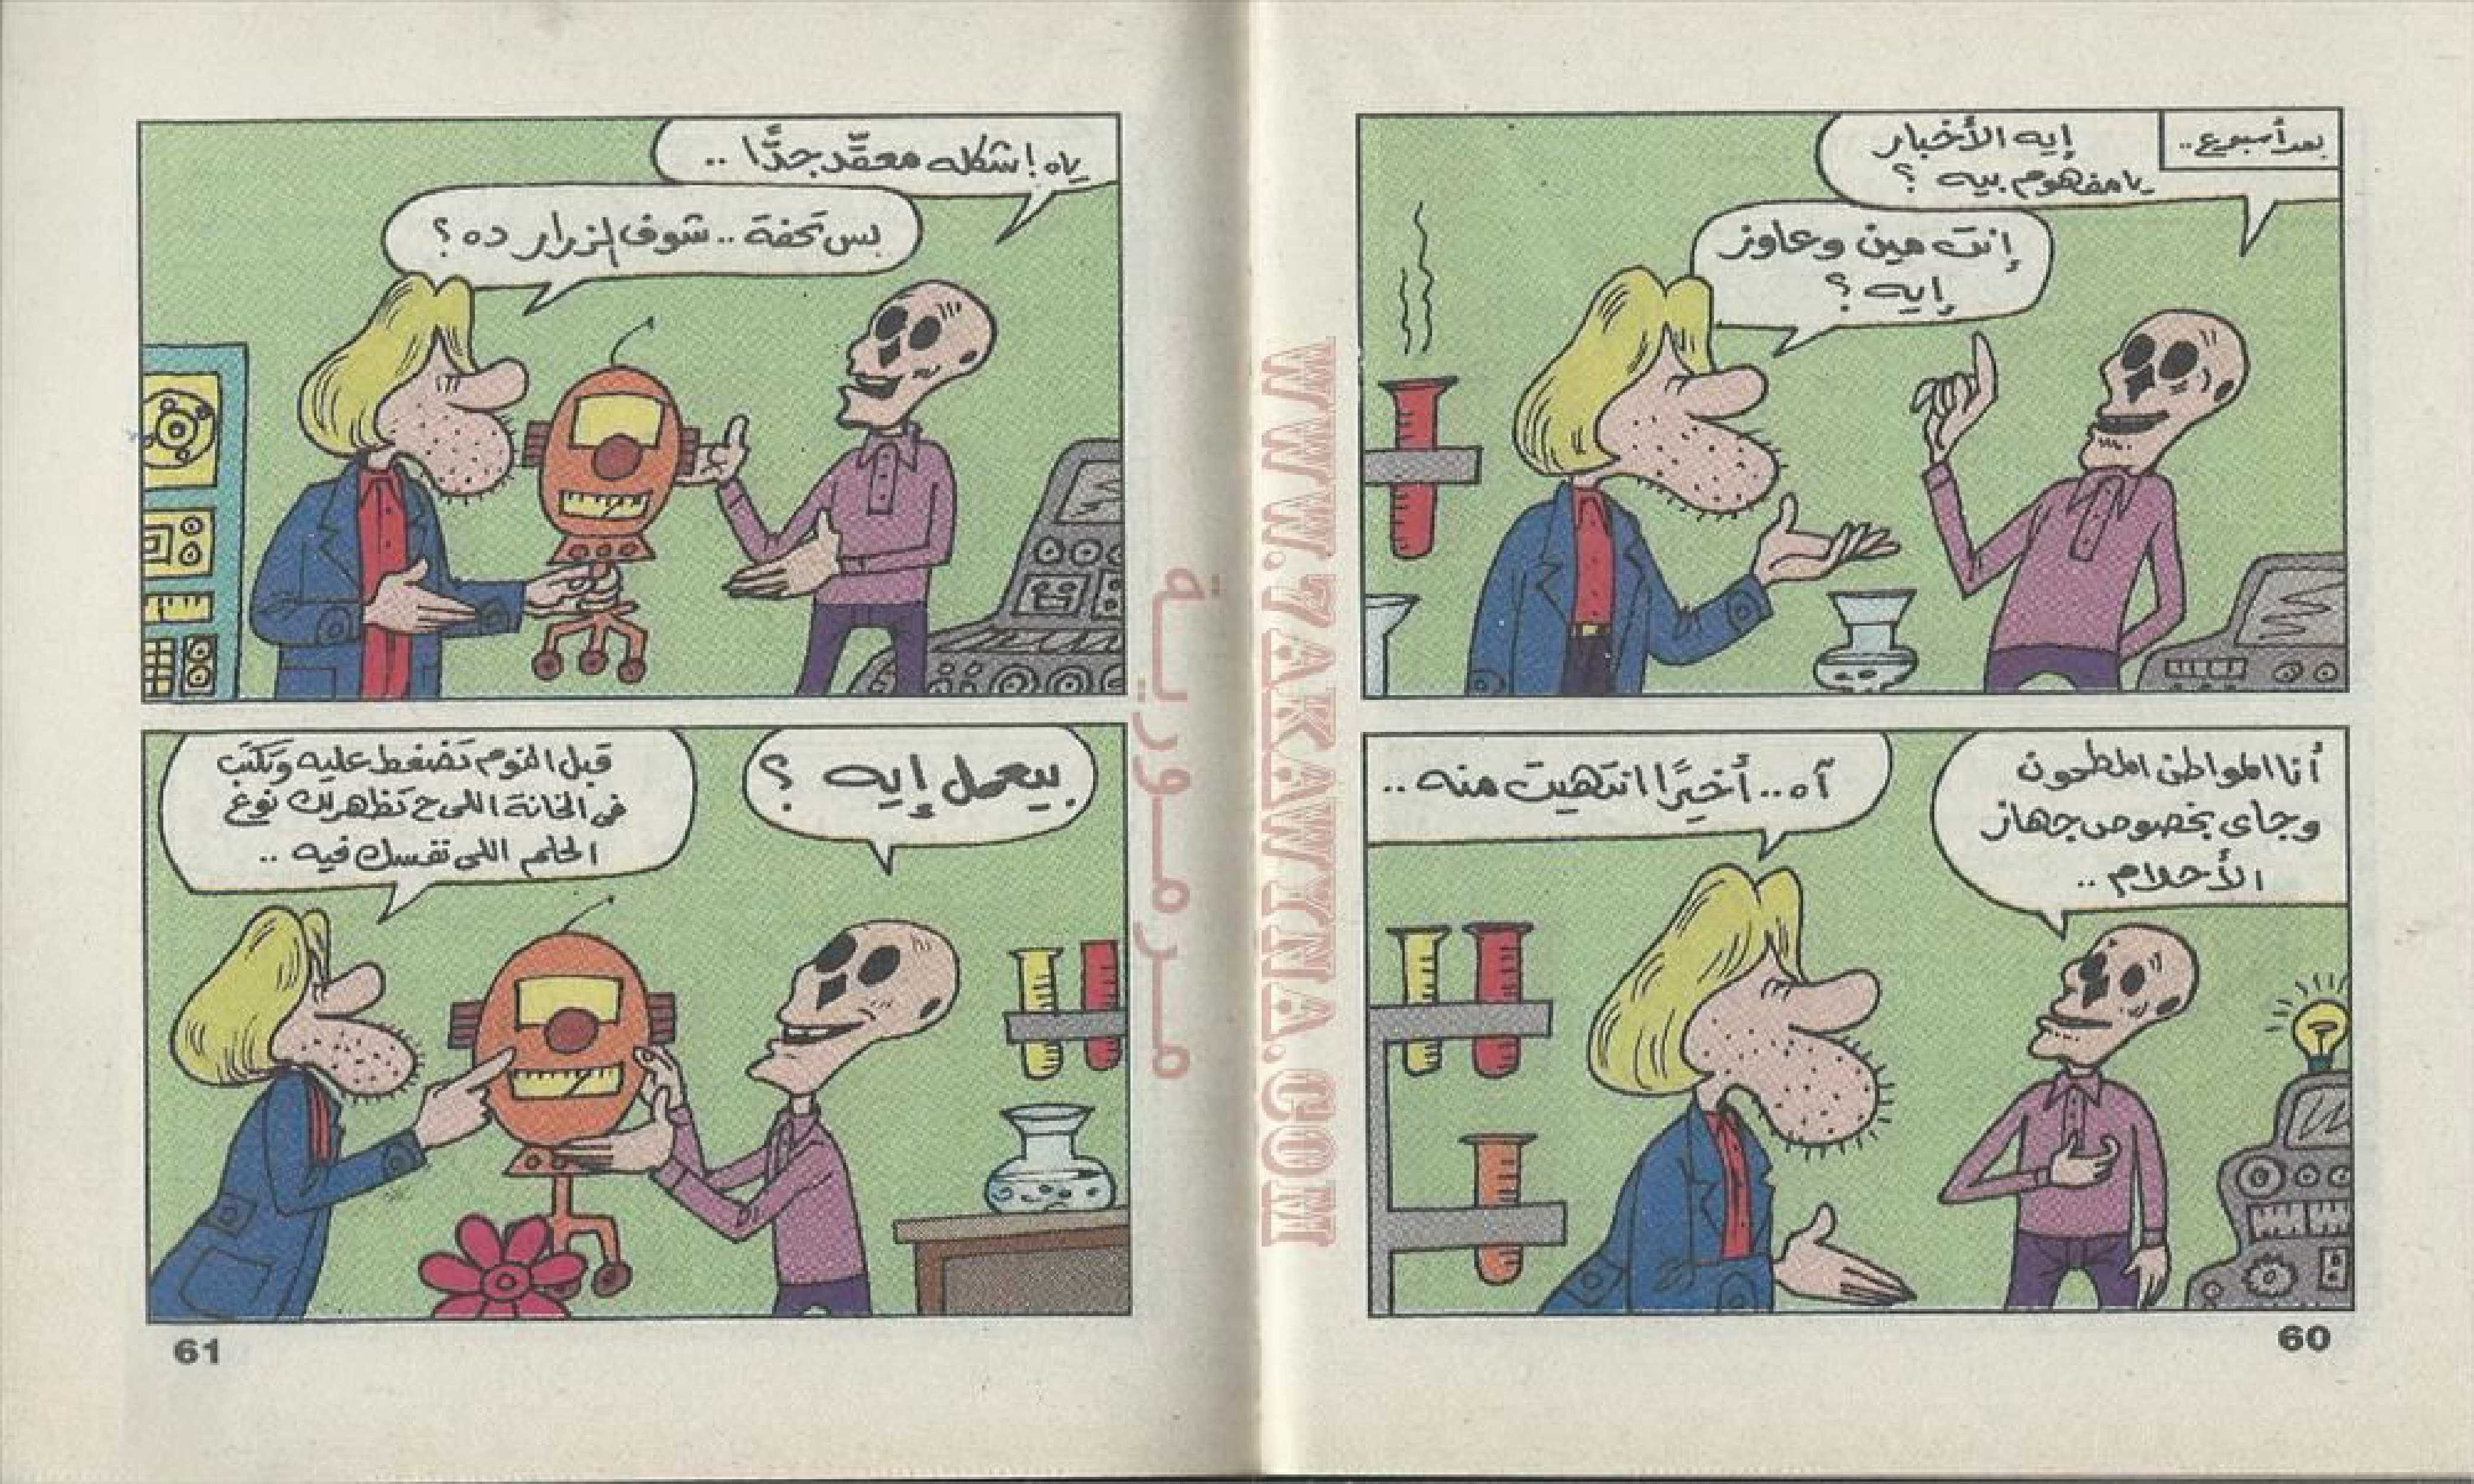 بعد أسبوع..
إيه الأخبار
يا مفهوم بيه ؟
إنت مين وعاوز
إيه ؟
أنا المواطن المطحون
وجاى بخصوص جهاز
الأحلام ..
آه.. أخيرًا انتهيت منه ..
60
ياه ! شكله معقّد جدًّا ..
بس تحفة .. شوف الزرار ده ؟
بيعمل إيه ؟
قبل النوم تَضغط عليه وتَكتب
فى الخانة اللى ح تَظهر لك نوع
الحلم اللى نفسك فيه ..
61
مـرمـوريـة
WWW.7AKAWYNA.COM